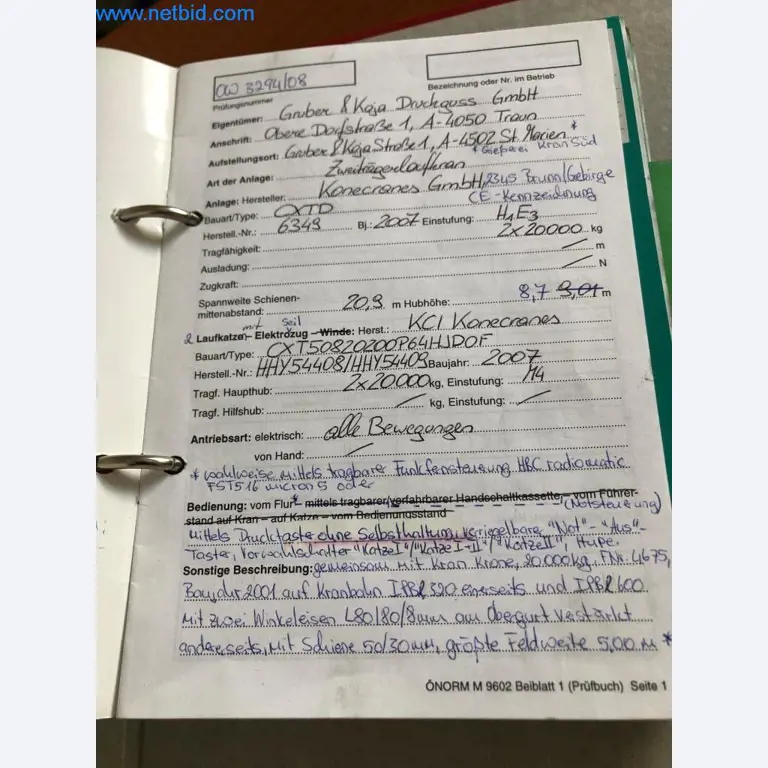 www.netbid.com
OW 3294/08
Prüfungsnummer
Bezeichnung oder Nr. im Betrieb
Eigentümer: Gruber & Kaja Druckguss GmbH
Anschrift: Obere Dorfstraße 1, A-4050 Traun
Aufstellungsort: Gruber & Kaja Straße 1, A-4502 St. Marien *
* Gießerei Kran Süd
Art der Anlage: Zweiträgerlaufkran
Anlage: Hersteller: Konecranes GmbH, 2345 Brunn/Gebirge
Bauart/Type: CXTD CE-Kennzeichnung
Herstell.-Nr.: 6349 Bj.: 2007 Einstufung: H1E3
Tragfähigkeit: 2x20000 kg
Ausladung: / m
Zugkraft: / N
Spannweite Schienen-
mittenabstand: 20,9 m Hubhöhe: 8,7 9,01 m
mit Seil
2 Laufkatzen – Elektrozug – Winde: Herst.: KCI Konecranes
Bauart/Type: CXT50820200P64HJDOF
Herstell.-Nr.: HHY54408/HHY54409 Baujahr: 2007
Tragf. Haupthub: 2x20000 kg, Einstufung: /14
Tragf. Hilfshub: / kg, Einstufung: /
Antriebsart: elektrisch: alle Bewegungen
von Hand: /
* wahlweise mittels tragbarer Funkfernsteuerung HBC radiomatic
FST516 micron 5 oder
Bedienung: vom Flur * – mittels tragbarer/verfahrbarer Handschaltkassette – vom Führer-
stand auf Kran – auf Katze – vom Bedienungsstand (Notsteuerung)
mittels Drucktaster ohne Selbsthaltung, verriegelbarer "Not"- "Aus"-
Taster, Vorwahlschalter "Katze I"/"Katze I-II"/"Katze II", Hupe.
Sonstige Beschreibung: gemeinsam mit Kran Krone, 20.000kg, FNr. 4675,
Baujahr 2001 auf Kranbahn IPBl 320 einerseits und IPBl 600
mit zwei Winkeleisen L80/80/8mm am Obergurt verstärkt
andererseits, mit Schiene 50/30mm, größte Feldweite 5,00 m *
ÖNORM M 9602 Beiblatt 1 (Prüfbuch) Seite 1